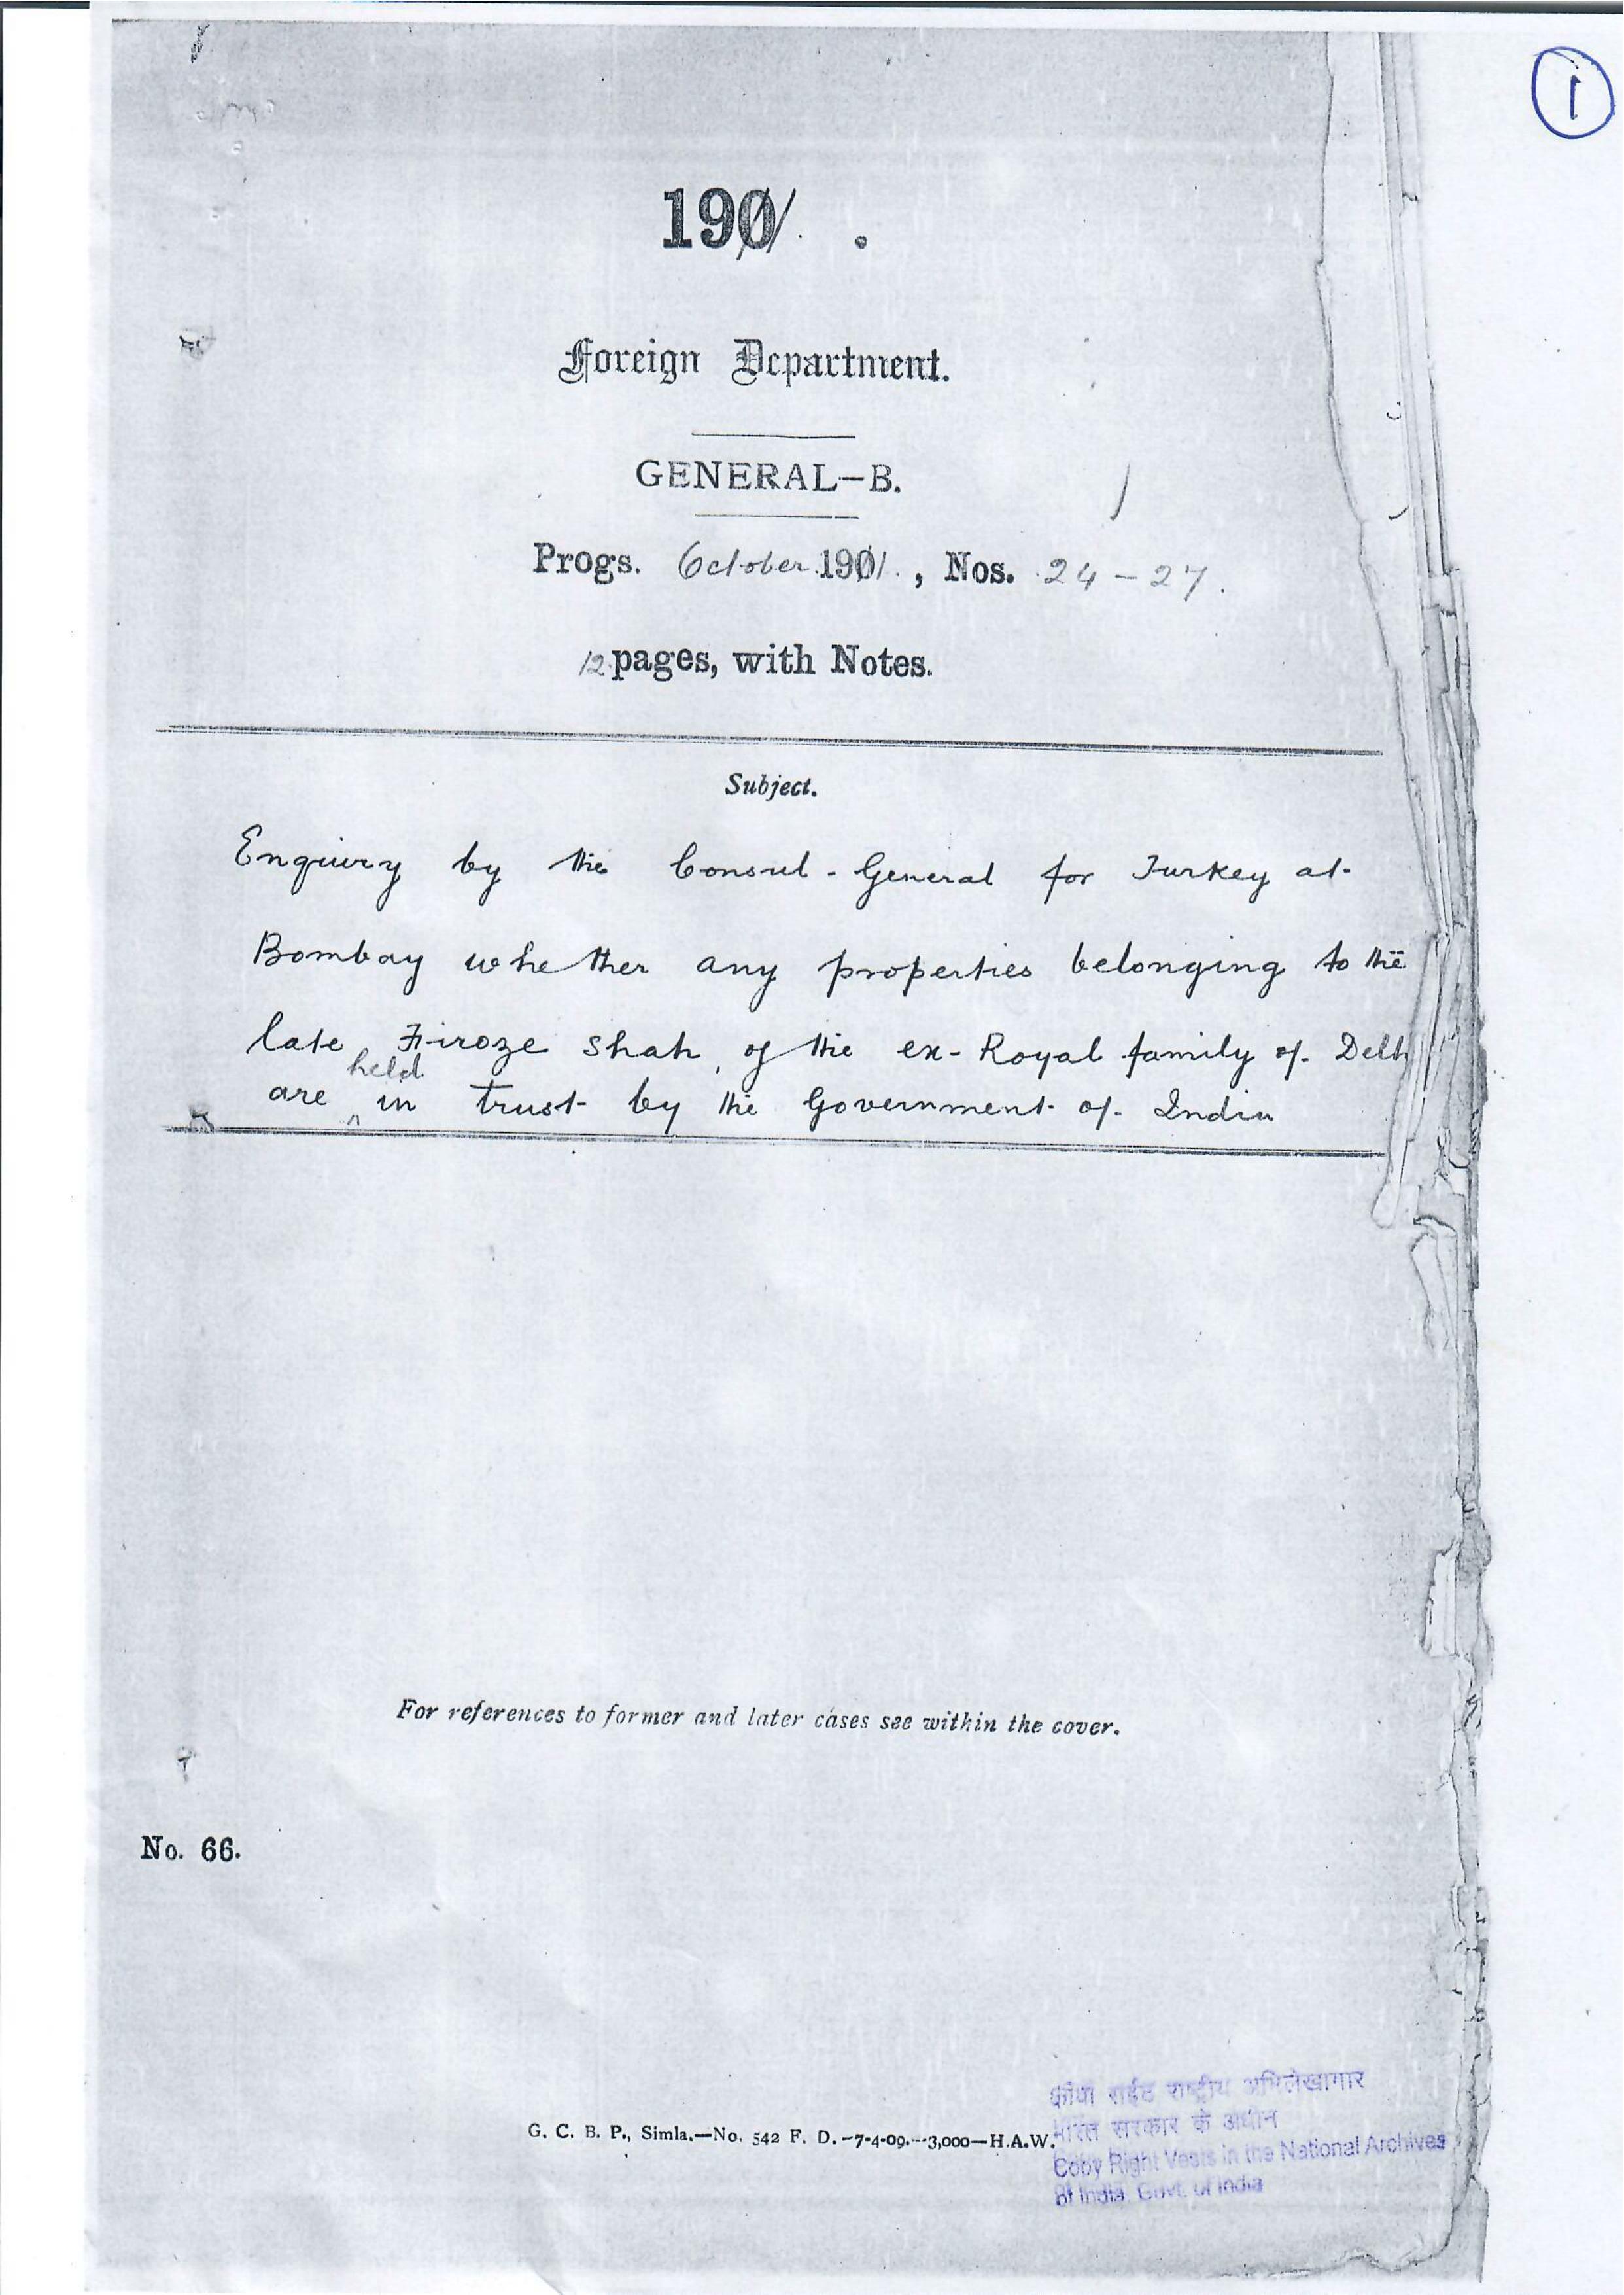 1
1901.
Foreign Department.
GENERAL—B.
Progs. October 1901., Nos. 24 – 27.
12 pages, with Notes.
Subject.
Enquiry by the Consul-General for Turkey at
Bombay whether any properties belonging to the
late Firoze Shah, of the ex-Royal family of Delh
held
are ^ in trust by the Government of India
For references to former and later cases see within the cover.
No. 66.
G. C. B. P., Simla.—No. 542 F. D.—7-4-09.—3,000—H.A.W.
कॉपी राईट राष्ट्रीय अभिलेखागार
भारत सरकार के अधीन
Coby Right Vests in the National Archives
of India. Govt. of India